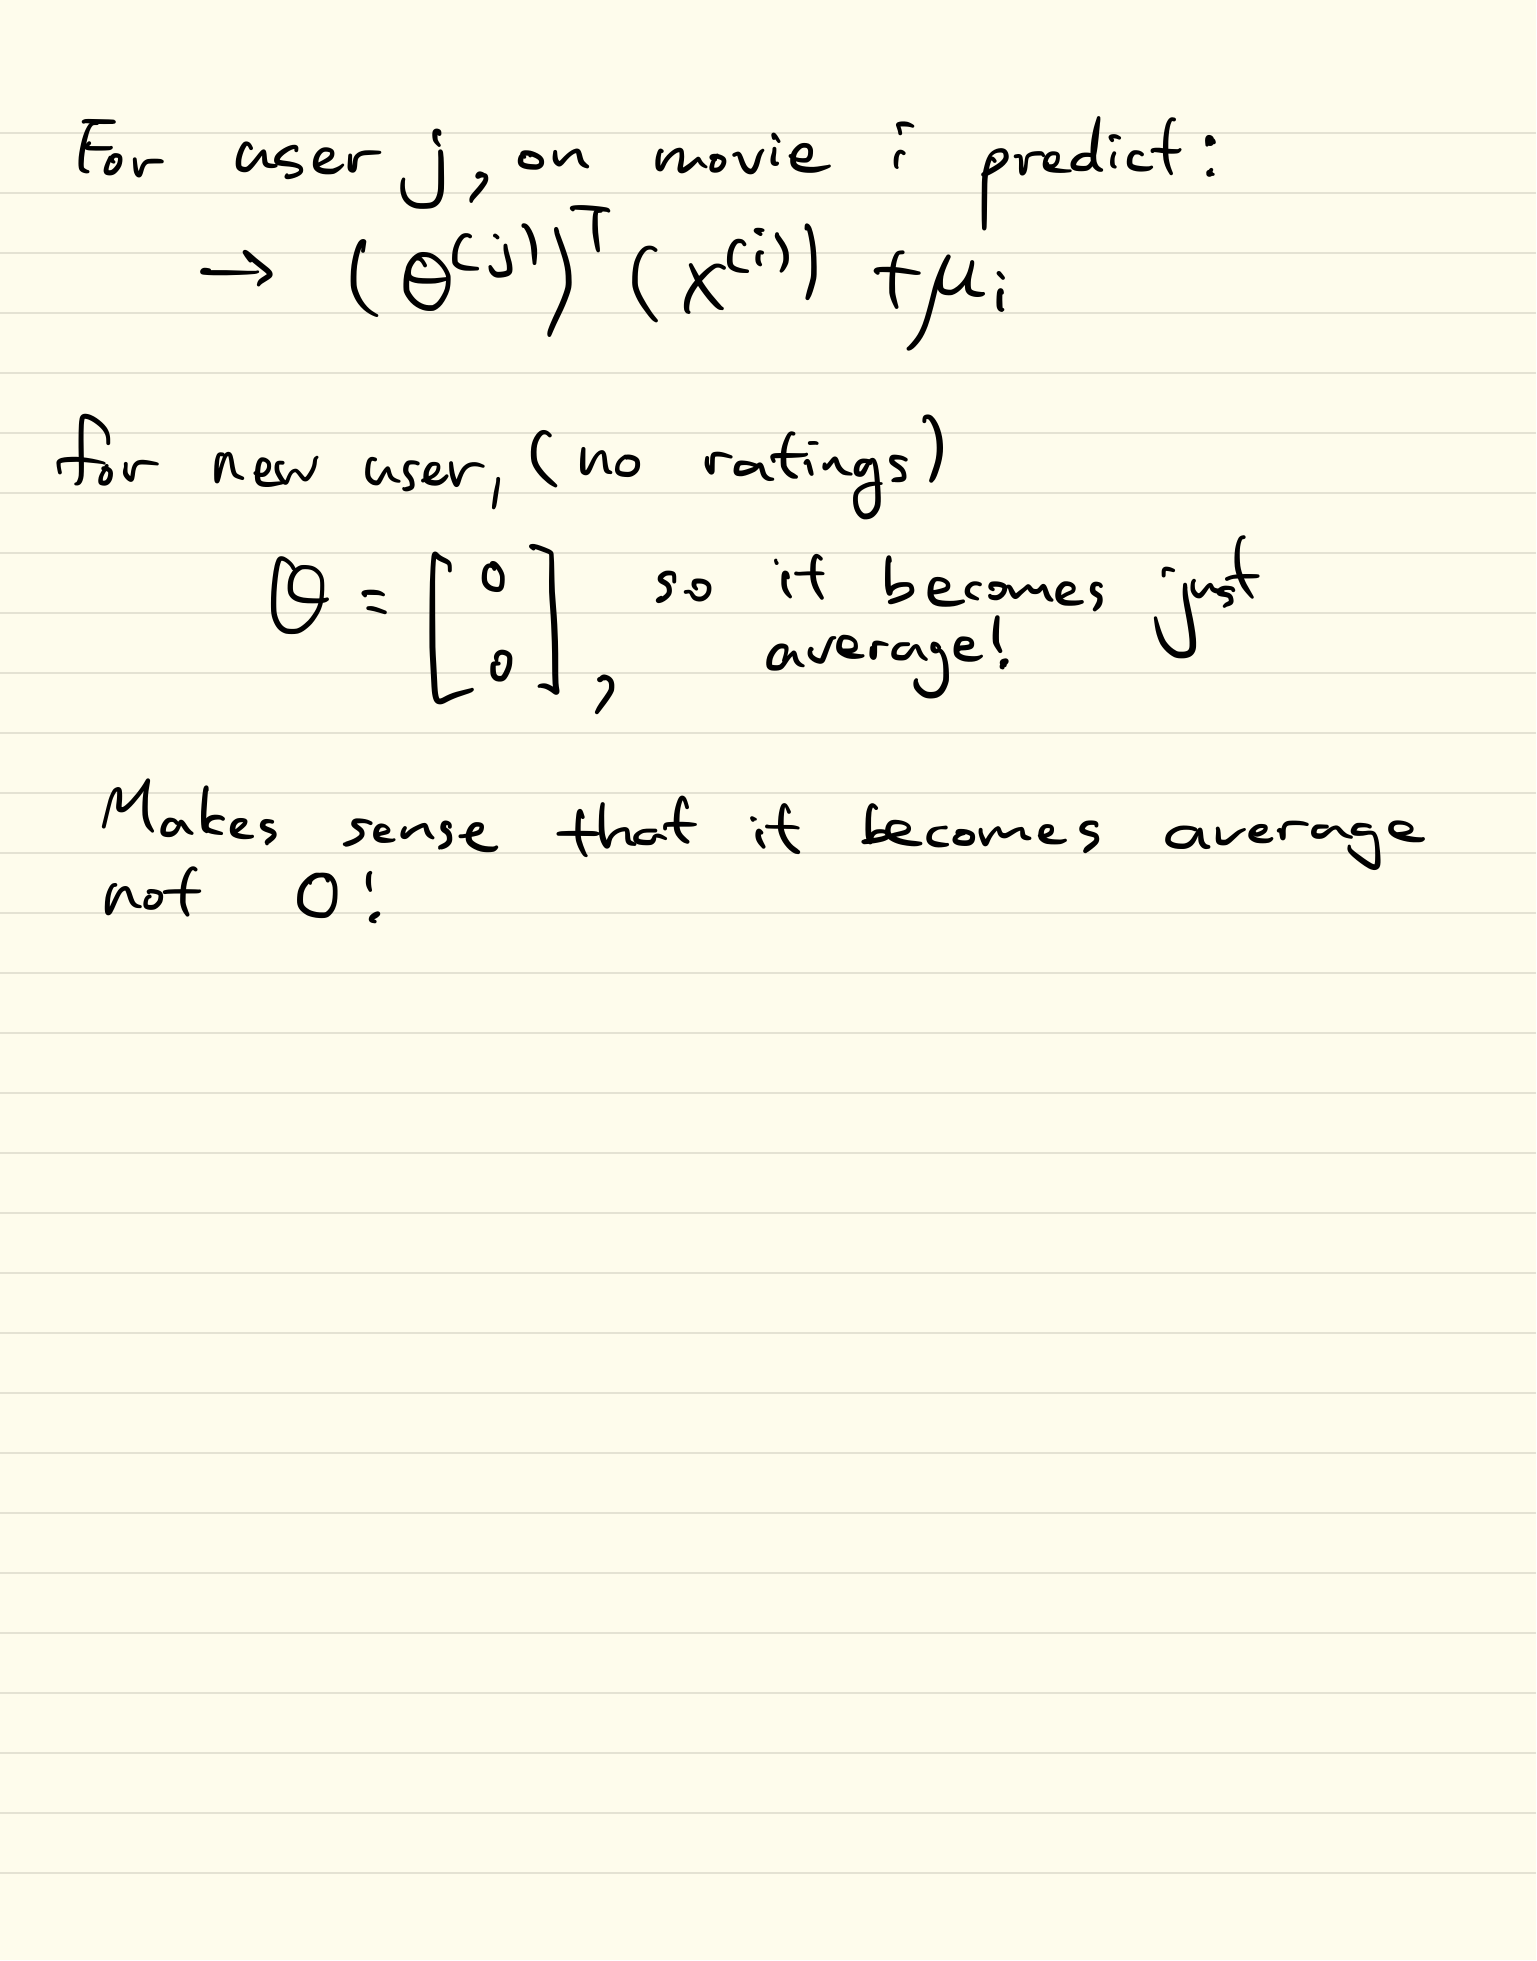 For user j, on movie i predict:
→ (θ^(j))^T (x^(i)) + μ_i
for new user, (no ratings)
θ = [0 0], so it becomes just
average!
Makes sense that it becomes average
not 0!